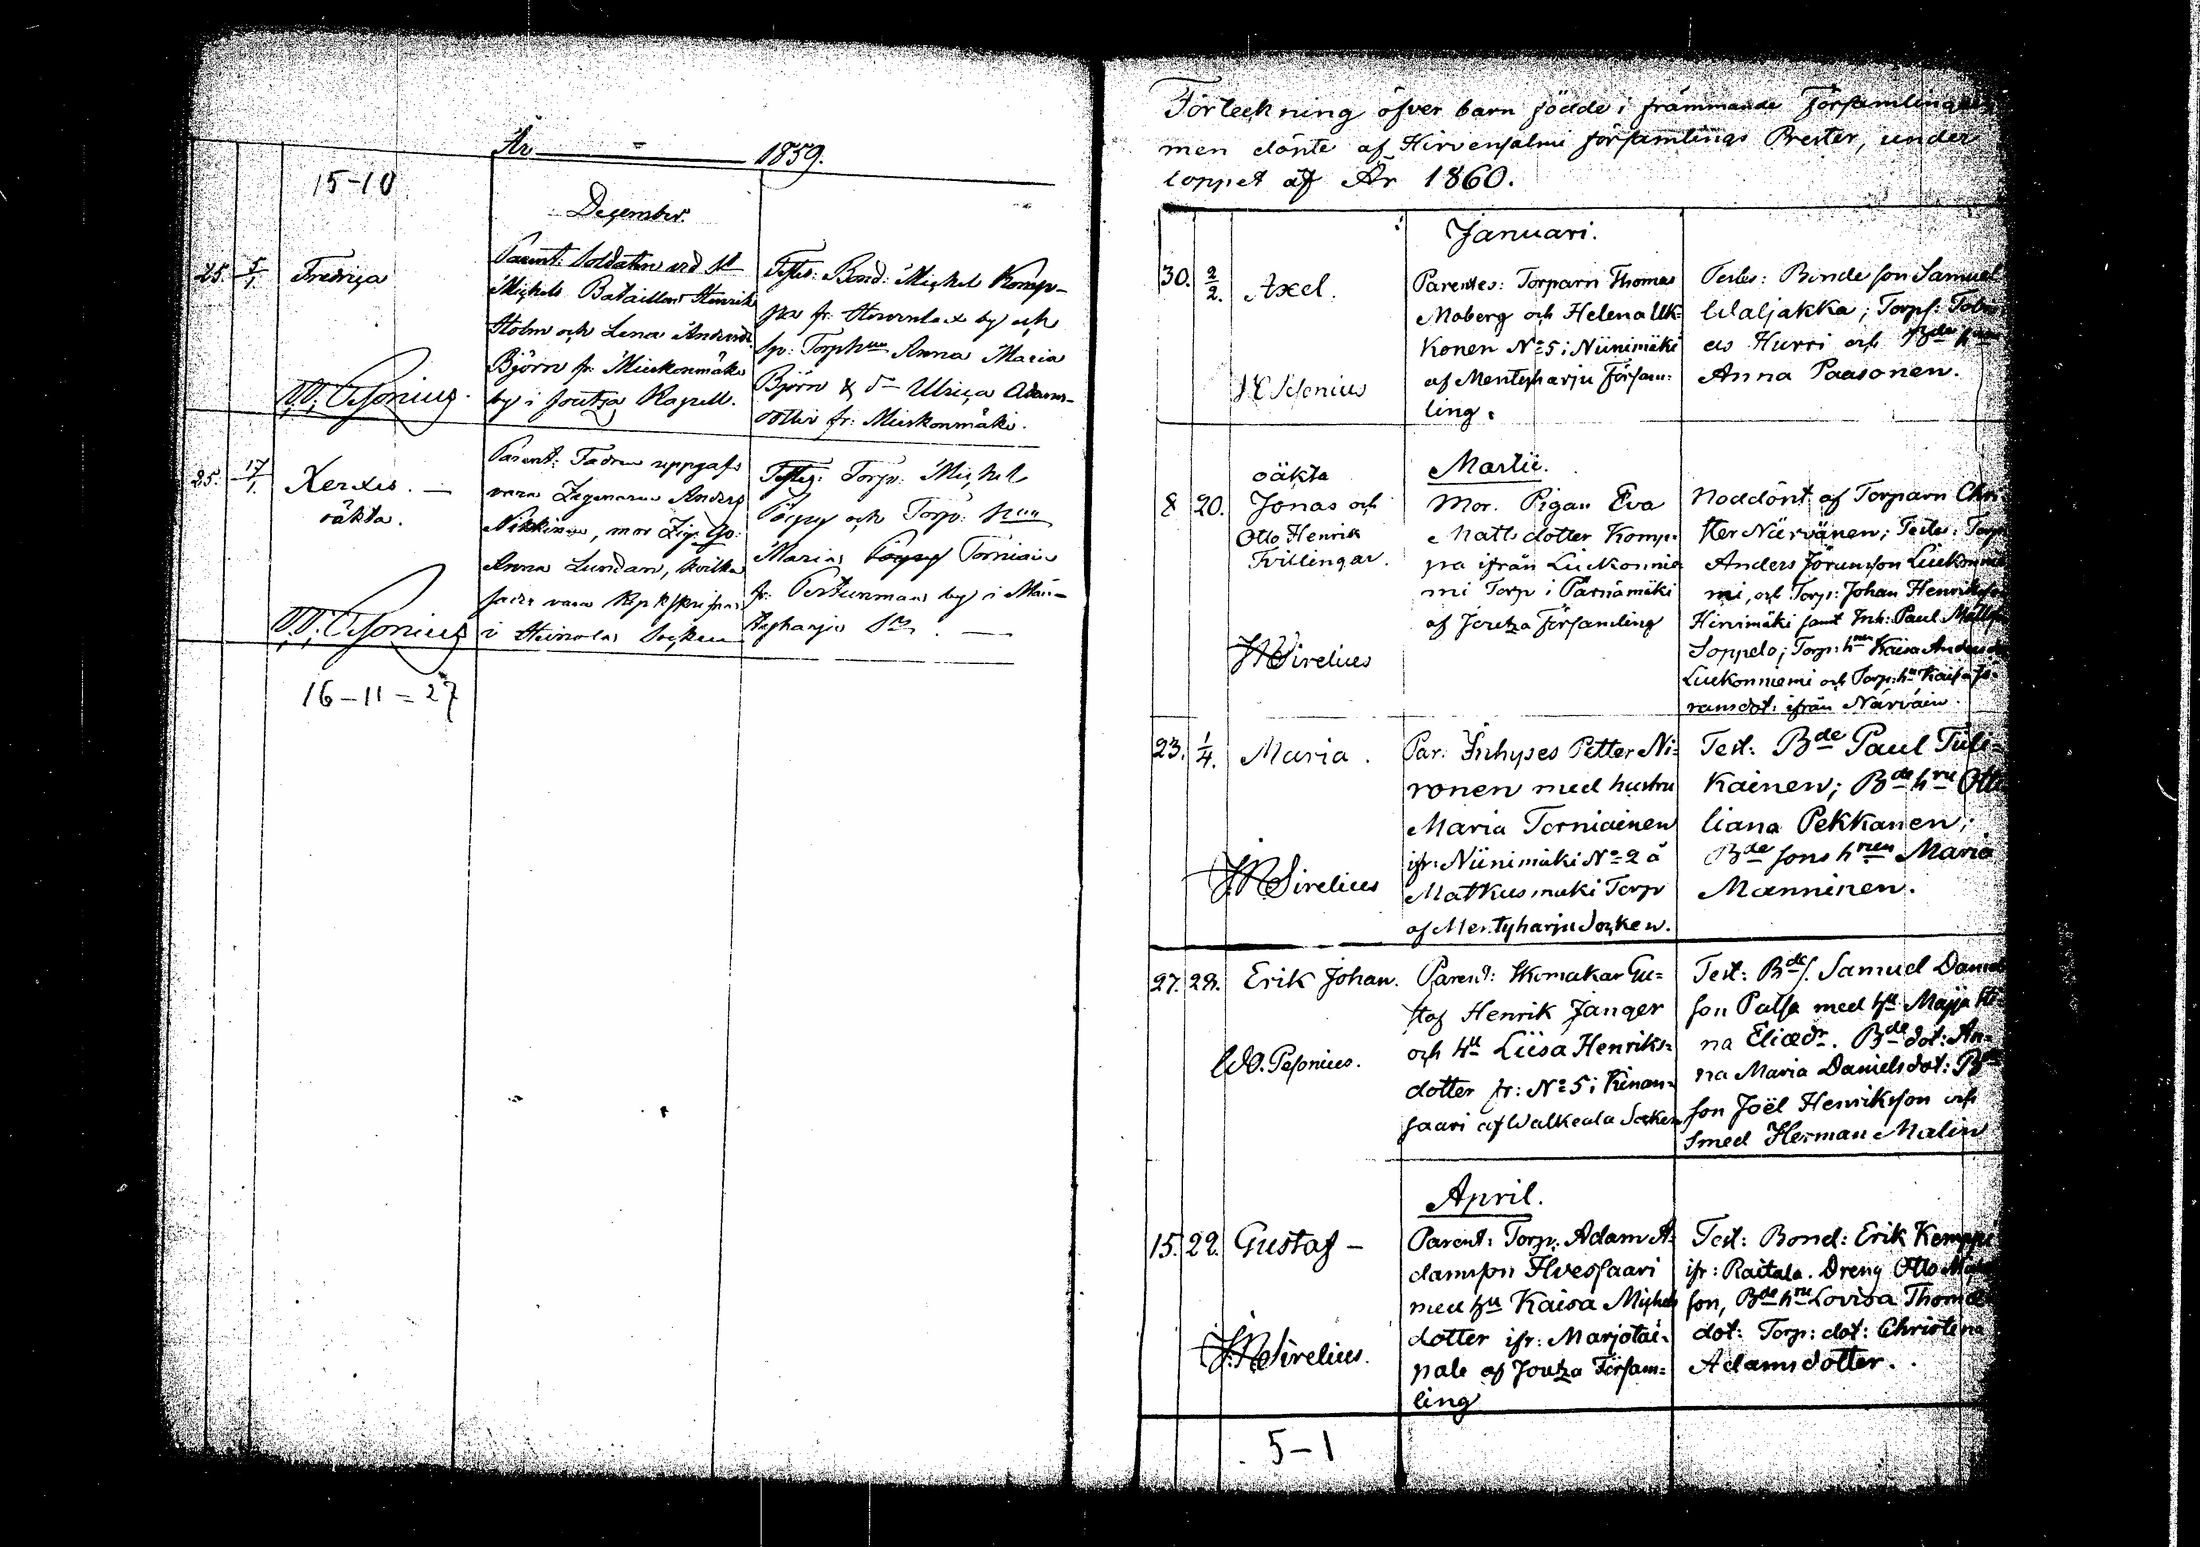 År = 1859.
15-10
December.
25. 5/1. Fredrica
Parent: Soldaten vid St
Michels Bataillon Henrik
Holm och Lena Andersd:
Björn fr. Mieskonmäki
by i Joutza Kapell.
Testes: Bond: Michel Komp-
pa fr. Hirvenlax by och
Torph Anna Maria
Björn & Ulrica Adams-
dotter fr: Mieskonmäki.
W. Pesonius.
25. 17/1. Xerxes. —
oäkta.
Parent: Fadren uppgafs
vara Zigenaren Anders
Nikkinen, mor Zig:
Anna Lundan, hvilka
vara
i Heinola Socken
Testes: Torp: Michel
Pöyry och Torp:
Maria Pöyry Torniain
fr. Pertunmaa by i Män-
tyharju Sn. —
W. Pesonius
16-11=27
Förteckning öfver barn födde i främmande Församlingar
men dönte af Hirvensalmi församlings Prester, under
loppet af År 1860.
Januari.
30. 2/2. Axel.
Parentes: Torparn Thomas
Moberg och Helena Uk-
konen No 5 i Niinimäki
af Mentyharju Försam-
ling.
Testes: Bondeson Samuel
Waljakka; Torps:
as Hurri och Bde
Anna Paasonen.
Martii.
8 20. oäkta
Jonas och
Otto Henrik
Tvillingar.
Mor. Pigan Eva
Mattsdotter Komp-
pa ifrån Liekonnie
mi Torp i Pärnämäki
af Joutza Församling
Noddönt af Torparn Chri-
ster Närvänen; Testes: Torp
Anders Göransson Liekonnie
mi, och Torp: Johan Henriksson
Hinimäki samt Inh: Paul Mattss
Soppela; Torp: hn Kaisa Andersd
Liekonniemi och Torp: hn Kaisa Gö-
ransdot: ifrån Närväin.
JWSirelius
23. 1/4. Maria.
Par: Inhyses Petter Ni-
ronen med hustru
Maria Torniainen
ifr: Niinimäki No 2 å
Matkusmäki Torp
af Mentyharju Socken.
Test: Bde Paul Tuli-
kainen; Bde hru Otti
liana Pekkanen;
Bde sons hrun Maria
Manninen.
JWSirelius
27. 28. Erik Johan.
Parent: Skomakar Gu-
staf Henrik Janger
och hu Liisa Henriks-
dotter fr: No 5 i Kinan-
saari af Walkeala Socken
Test: Bde s. Samuel Daniel
son Patsa med hu Maja Sti-
na Eliædr. Bde dot: An-
na Maria Danielsdot: Bde
son Joël Henriksson och
Smed Herman Malin
WO. Pesonius.
April.
15. 22. Gustaf —
Parent: Torp: Adam A-
damsson Ilvessaari
med hu Kaisa Michels
dotter ifr: Marjotai-
pale af Joutza Försam-
ling
Test: Bond: Erik Kemppi
ifr: Raitala. Dreng Otto
son, Bde hru Lovisa Thomas
dot: Torp: dot: Christina
Adamsdotter.
JWSirelius.
5-1